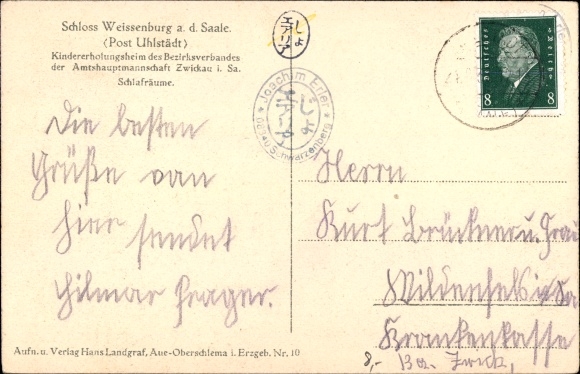 Schloss Weissenburg a. d. Saale.
(Post Uhlstädt)
Kindererholungsheim des Bezirksverbandes
der Amtshauptmannschaft Zwickau i. Sa.
Schlafräume.
Joachim Erler
Schwarzenberg
Deutsches Reich
8 8
Die besten
Grüße von
hier sendet
Hilmar Prager.
Herrn
Kurt Brückner u. Frau
Wildenfels i/Sa
Krankenkasse
Bez. Zwick.
8,-
Aufn. u. Verlag Hans Landgraf, Aue-Oberschlema i. Erzgeb. Nr. 10